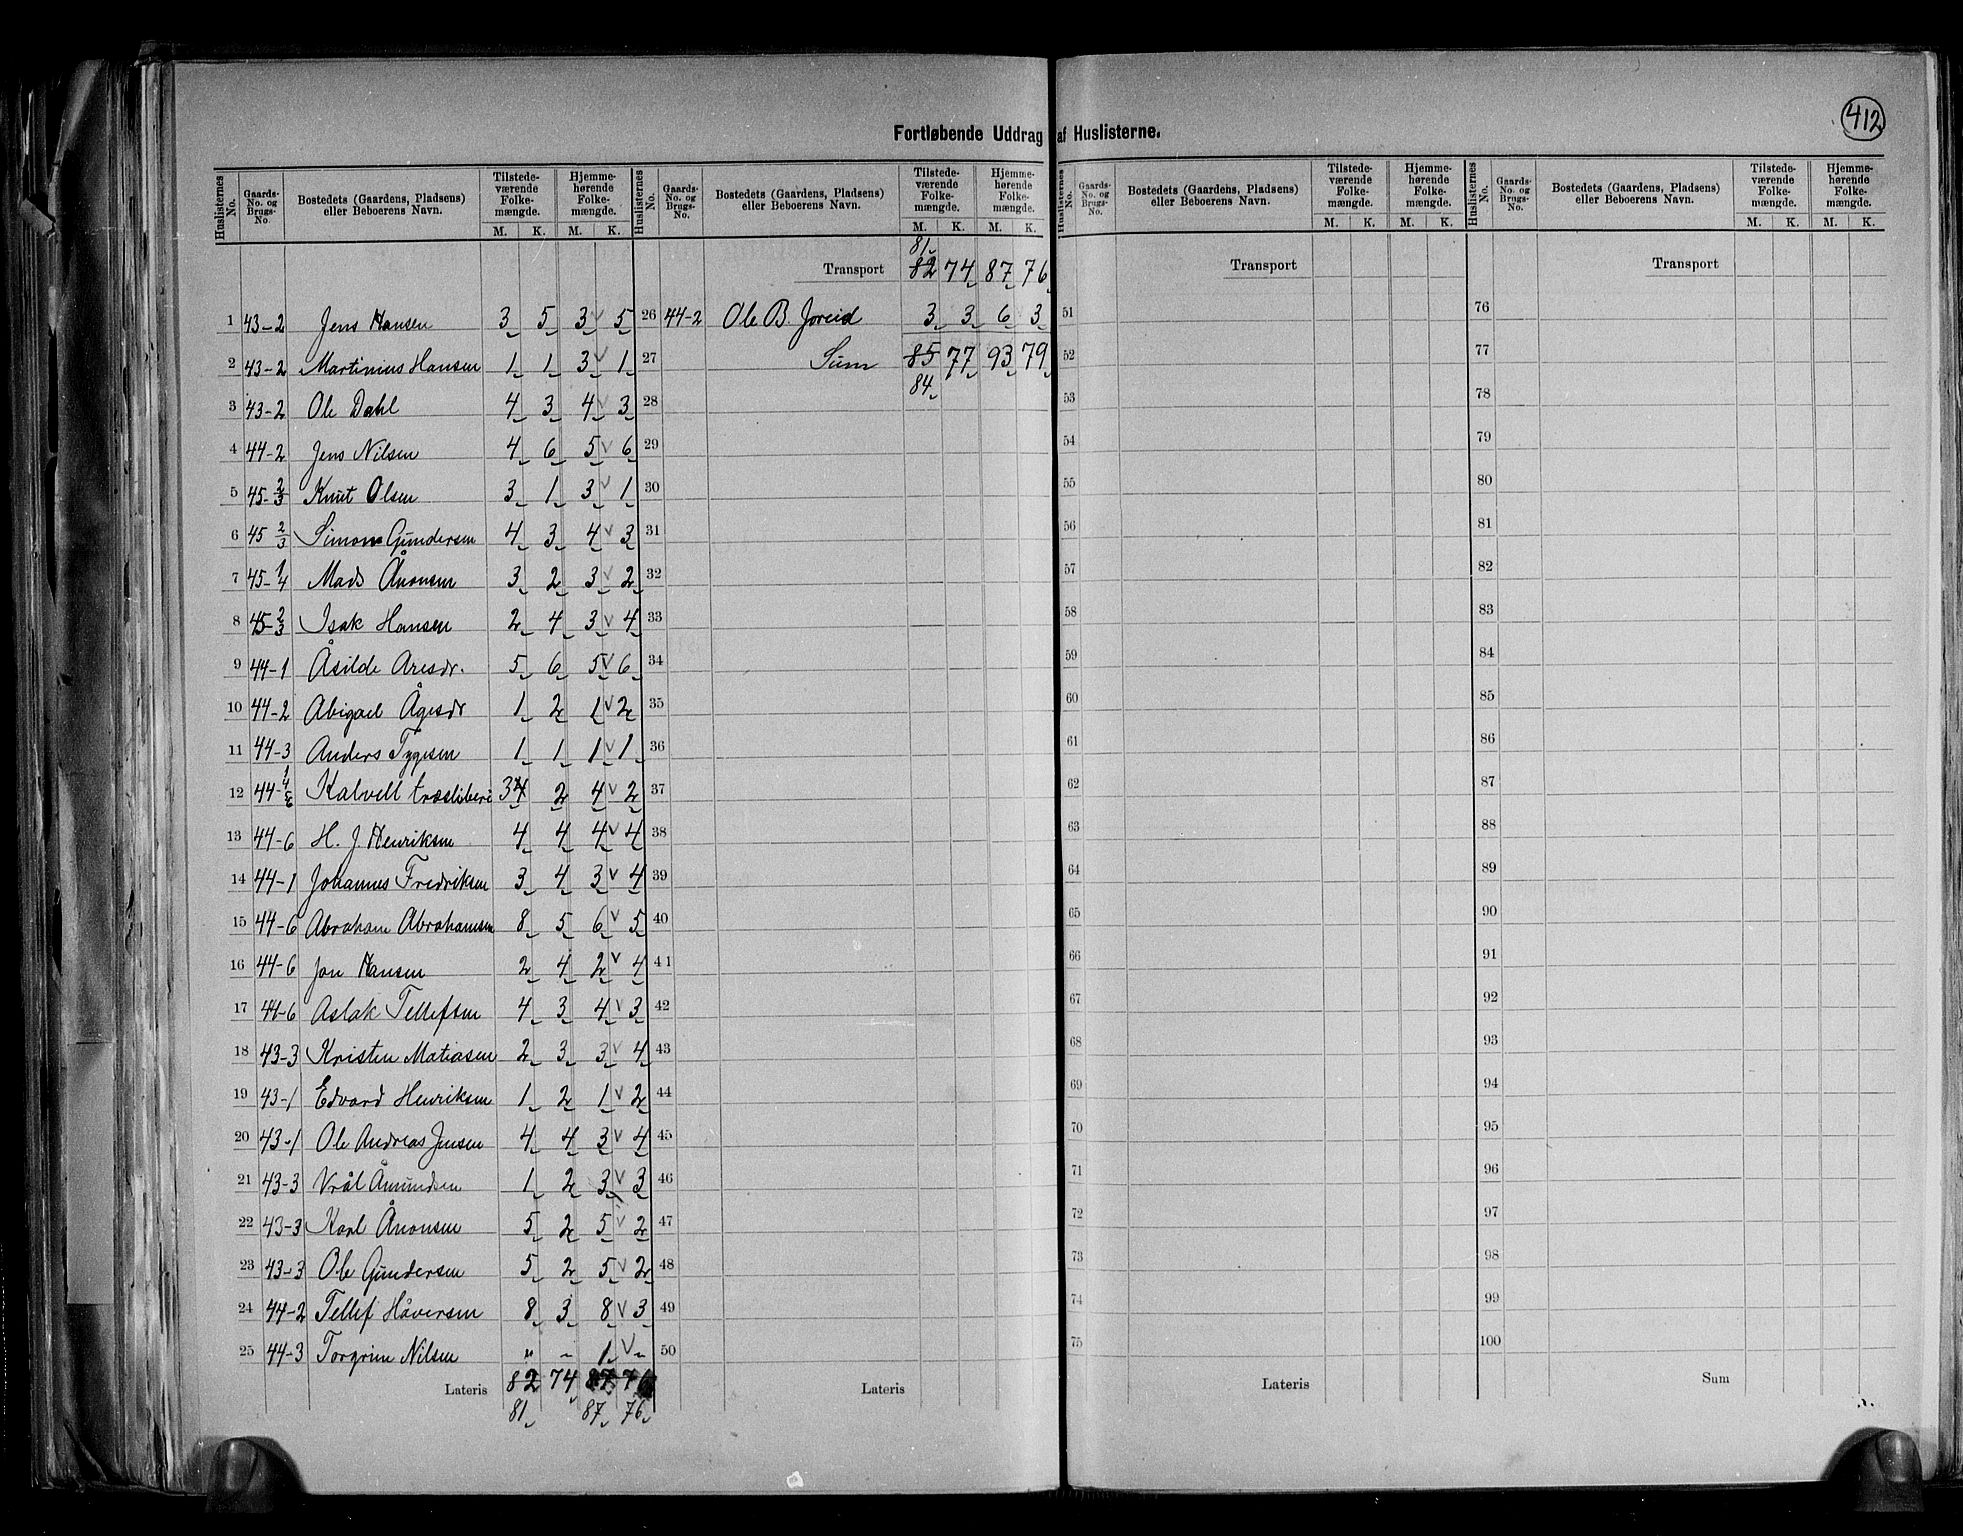 412
Fortløbende Uddrag af Huslisterne.
Huslisternes No. Gaards-No. og Brugs-No. Bostedets (Gaardens, Pladsens) eller Beboerens Navn. Tilstede-værende Folke-mængde. M. K. Hjemme-hørende Folke-mængde. M. K. Huslisternes No. Gaards-No. og Brugs-No. Bostedets (Gaardens, Pladsens) eller Beboerens Navn. Tilstede-værende Folke-mængde. M. K. Hjemme-hørende Folke-mængde. M. K. Huslisternes No. Gaards-No. og Brugs-No. Bostedets (Gaardens, Pladsens) eller Beboerens Navn. Tilstede-værende Folke-mængde. M. K. Hjemme-hørende Folke-mængde. M. K. Huslisternes No. Gaards-No. og Brugs-No. Bostedets (Gaardens, Pladsens) eller Beboerens Navn. Tilstede-værende Folke-mængde. M. K. Hjemme-hørende Folke-mængde. M. K.
81
Transport 82 74 87 76 Transport Transport
1 43-2 Jens Hansen 3 5 3 v 5 26 44-2 Ole B. Joreid 3 3 6 3 51 76
2 43-2 Martinius Hansen 1 1 3 v 1 27 Sum 85 77 93 79 52 77
84
3 43-2 Ole Dahl 4 3 4 v 3 28 53 78
4 44-2 Jens Nilsen 4 6 5 v 6 29 54 79
5 45-2/3 Knut Olsen 3 1 3 v 1 30 55 80
6 45 2/3 Simon Gundersen 4 3 4 v 3 31 56 81
7 45-1/4 Mads Ånonsen 3 2 3 v 2 32 57 82
8 45-2/3 Isak Hansen 2 4 3 v 4 33 58 83
9 44-1 Åsilde Aresdr. 5 6 5 v 6 34 59 84
10 44-2 Abigael Ågesdr 1 2 1 v 2 35 60 85
11 44-3 Anders Tygesen 1 1 1 v 1 36 61 86
12 44- Kalvell træsliberi 3 4 2 4 v 2 37 62 87
13 44-6 H. J. Henriksen 4 4 4 v 4 38 63 88
14 44-1 Johannes Fredriksen 3 4 3 v 4 39 64 89
15 44-6 Abraham Abrahamsen 8 5 6 v 5 40 65 90
16 44-6 Jon Hansen 2 4 2 v 4 41 66 91
17 44-6 Aslak Tellefsen 4 3 4 v 3 42 67 92
18 43-3 Kristen Matiasen 2 3 3 v 4 43 68 93
19 43-1 Edvard Henriksen 1 2 1 v 2 44 69 94
20 43-1 Ole Andreas Jensen 4 4 3 v 4 45 70 95
21 43-3 Vrål Åmundsen 1 2 3 v 3 46 71 96
22 43-3 Karl Ånonsen 5 2 5 v 2 47 72 97
23 43-3 Ole Gundersen 5 2 5 v 2 48 73 98
24 44-2 Tellef Håversen 8 3 8 v 3 49 74 99
25 44-3 Torgrim Nilsen " - 1 v - 50 75 100
Lateris 82 74 87 76 Lateris Lateris Sum
81 87 76